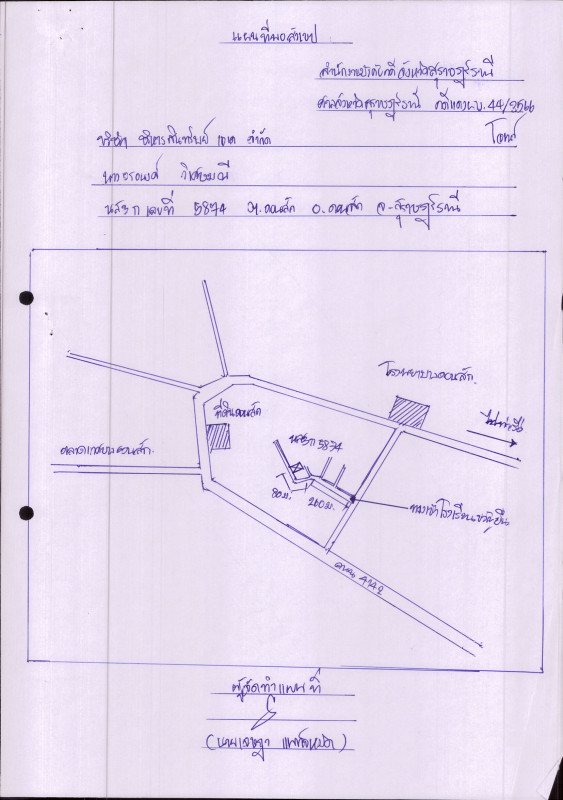 แผนที่พอสังเขป
สำนักงานบังคับคดีจังหวัดสุราษฎร์ธานี
ศาลจังหวัดสุราษฎร์ธานี คดีแดง ผบ. 44/2566
บริษัท บริหารสินทรัพย์ จำกัด โจทก์
นายอรพงศ์
น.ส.3 ก เลขที่ 5874 ต.ดอนสัก อ.ดอนสัก จ.สุราษฎร์ธานี
โรงพยาบาลดอนสัก
ไปท่าเรือ
ที่ดินดอนสัก
ตลาดเทศบาลดอนสัก
นส3ก 5874
80 ม.
260 ม.
ทางเข้าโรงเรียน
ถนน 4142
ผู้จัดทำแผนที่